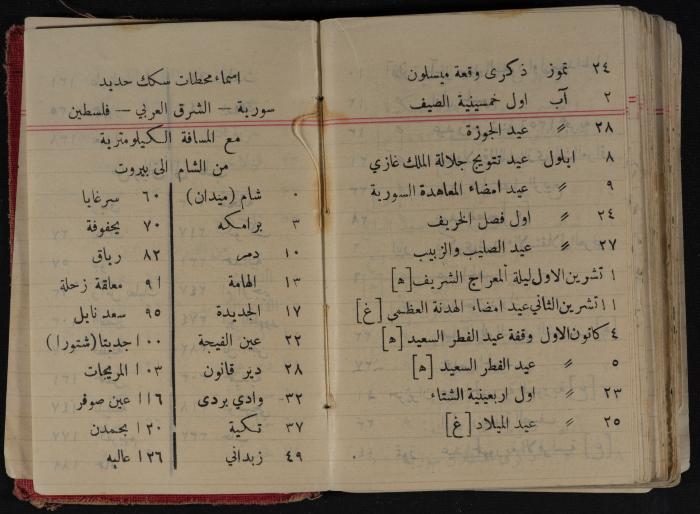 ٢٤ تموز ذكرى وقعة ميسلون
٢ آب اول خمسينية الصيف
٢٨ 〃 عيد الجوزة
٨ ايلول عيد تتويج جلالة الملك غازي
٩ 〃 عيد امضاء المعاهدة السورية
٢٤ 〃 اول فصل الخريف
٢٧ 〃 عيد الصليب والزبيب
١ تشرين الاول ليلة المعراج الشريف [ه]
١١ تشرين الثاني عيد امضاء الهدنة العظمى [غ]
٤ كانون الاول وقفة عيد الفطر السعيد [ه]
٥ 〃 عيد الفطر السعيد [ه]
٢٣ 〃 اول اربعينية الشتاء
٢٥ 〃 عيد الميلاد [غ]
اسماء محطات سكك حديد
سورية – الشرق العربي – فلسطين
مع المسافة الكيلومترية
من الشام الى بيروت
٠ شام (ميدان)
٣ برامكه
١٠ دمر
١٣ الهامة
١٧ الجديدة
٢٢ عين الفيجة
٢٨ دير قانون
٣٢ وادي بردى
٣٧ تكية
٤٩ زبداني
٦٠ سرغايا
٧٠ يحفوفة
٨٢ رياق
٩١ معلقة زحلة
٩٥ سعد نايل
١٠٠ جديتا (شتورا)
١٠٣ المريجات
١١٦ عين صوفر
١٢٠ بحمدن
١٢٦ عاليه